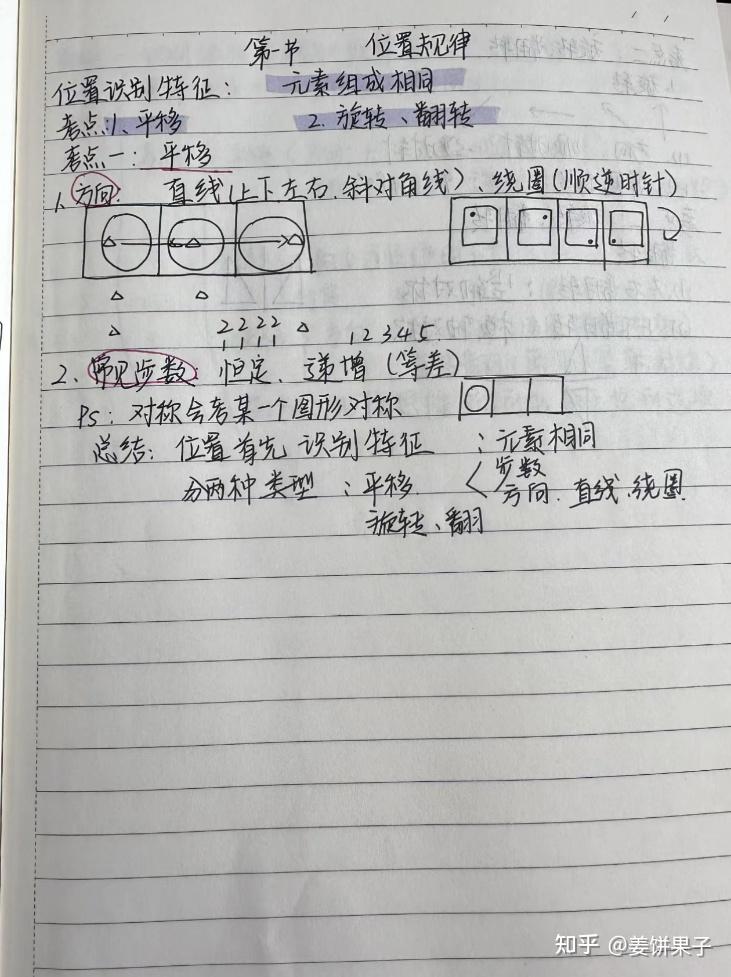 第一节 位置规律
位置识别特征: 元素组成相同
考点:1、平移 2. 旋转、翻转
考点一: 平移
1、方向: 直线(上下左右.斜对角线)、绕圈(顺逆时针)
2 2 2 2
1 1 1 1 1 2 3 4 5
2、常见步数: 恒定、递增(等差)
Ps: 对称会考某一个图形对称
总结: 位置首先识别特征 : 元素相同
分两种类型 : 平移. 步数
方向. 直线.绕圈.
旋转、翻
知乎 @姜饼果子